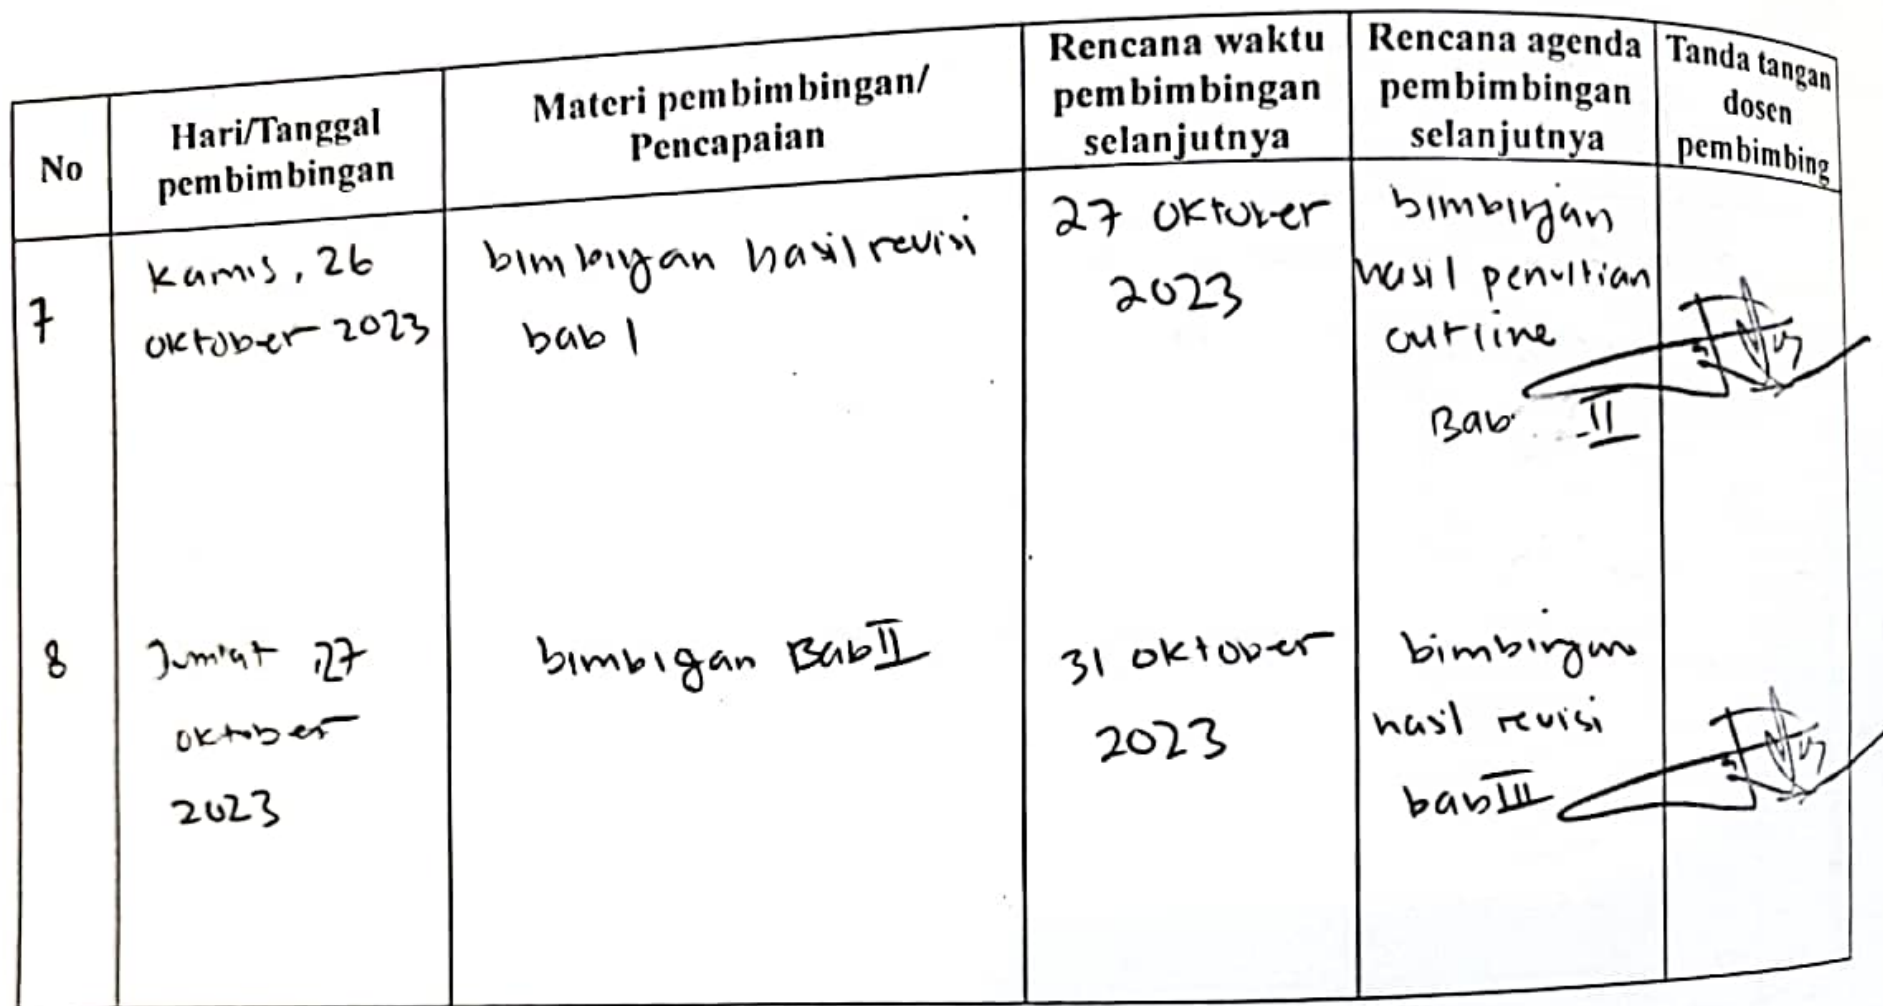 No
Hari/Tanggal
pembimbingan
Materi pembimbingan/
Pencapaian
Rencana waktu
pembimbingan
selanjutnya
Rencana agenda
pembimbingan
selanjutnya
Tanda tangan
dosen
pembimbing
7
Kamis, 26
oktober 2023
bimbigan hasil revisi
bab 1
27 oktober
2023
bimbingan
hasil penulitian
outline
Bab II
8
Jum'at, 27
oktober
2023
bimbigan Bab II
31 oktober
2023
bimbingan
hasil revisi
bab III